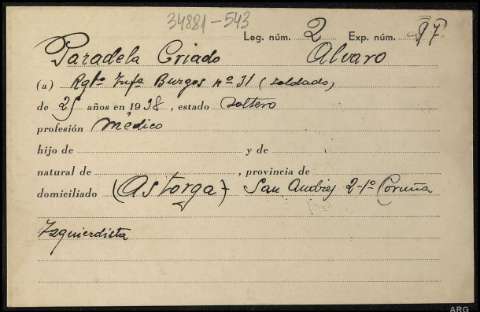 34881-543
Leg. núm. 2 Exp. núm. 97
Paradela Criado Alvaro
(a) Rgto Infa Burgos nº 31 (soldado)
de 25 años en 1938, estado soltero
profesión médico
hijo de y de
natural de , provincia de
domiciliado (Astorga) San Andrés 2-1º Coruña
Izquierdista
ARG